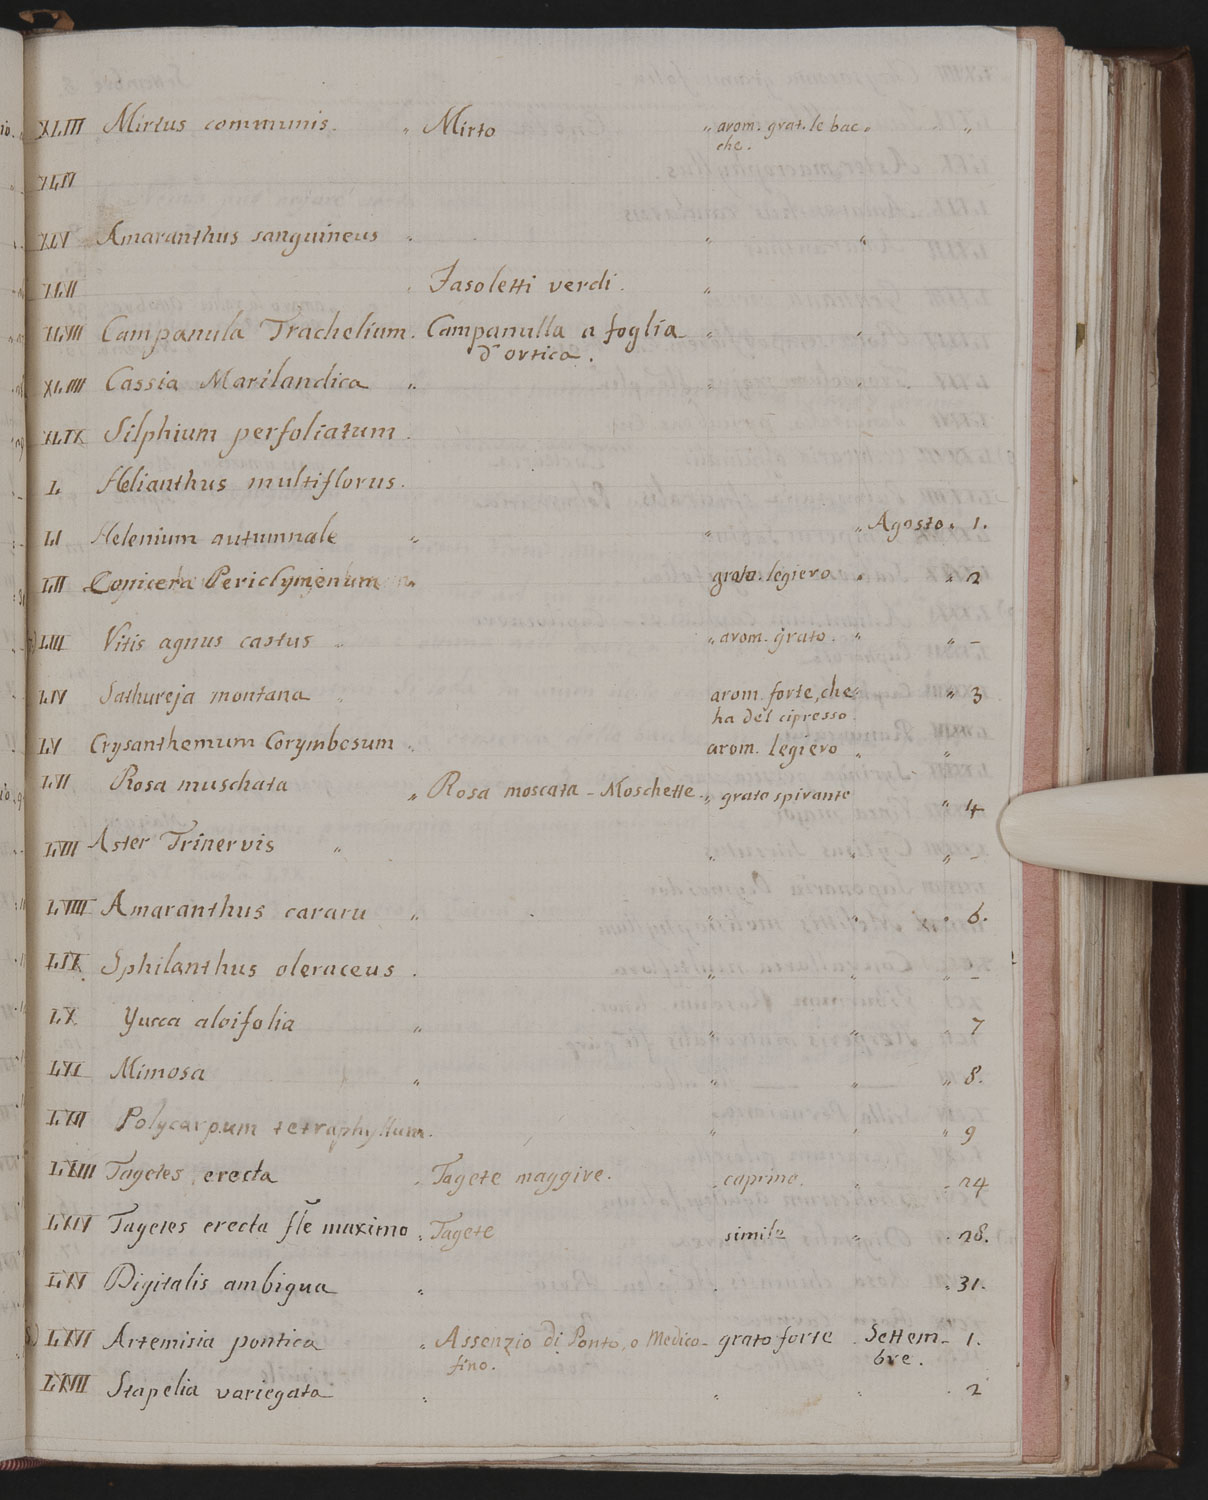 XLIII Mirtus communis. „ Mirto „ arom. grat. le bac „ „
che.
XLIV
XLV Amaranthus sanguineus „ „ „
XLVI Fasoletti verdi. „
XLVII Campanula Trachelium. Campanulla a foglia „
d'ortica.
XLVIII Cassia Marilandica „
XLIX Silphium perfoliatum.
L Helianthus multiflorus.
LI Helenium autumnale „ „ Agosto. 1.
LII Lonicera Periclymenum „ grato legiero „ „ 2
LIII Vitis agnus castus „ „ arom. grato. „ „ –
LIV Sathureja montana „ arom. forte, che „ 3
ha del cipresso
LV Crysanthemum Corymbosum „ arom. legiero „ „
LVI Rosa muschata „ Rosa moscata – Moschette „ grato spirante „ 4
LVII Aster Trinervis „ „ „ „ –
LVIII Amaranthus cararu „ „ „ „ 6.
LIX Sphilanthus oleraceus. „ „ „ –
LX Yucca aloifolia „ „ „ 7
LXI Mimosa „ „ „ „ 8.
LXII Polycarpum tetraphyllum. „ „ „ 9
LXIII Tagetes erecta „ Tagete maggire. caprino. „ „ 24
LXIV Tagetes erecta fle maximo „ Tagete simile „ 28.
LXV Digitalis ambigua „ „ 31.
LXVI Artemisia pontica „ Assenzio di Ponto, o Medico – grato forte Settem– 1.
fino. bre.
LXVII Stapelia variegata „ „ „ 2